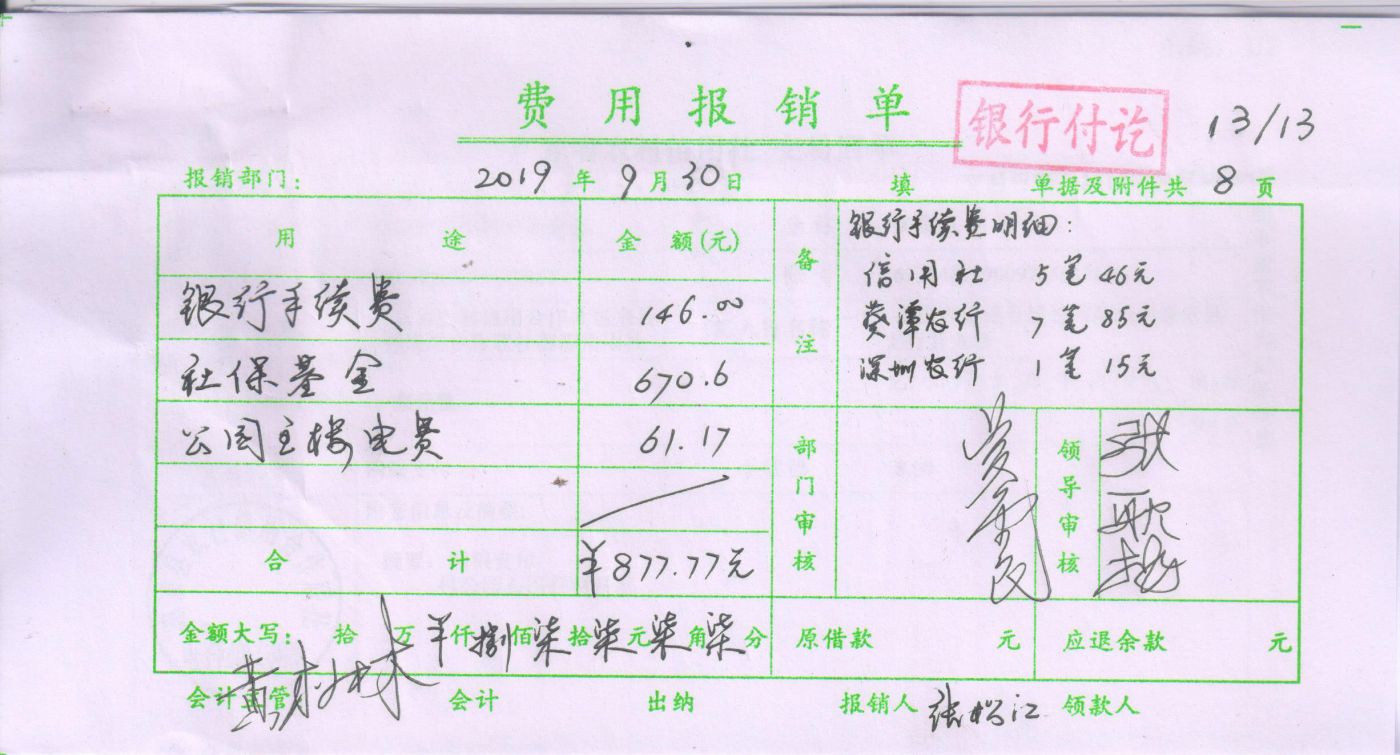 费用报销单
银行付讫
13/13
报销部门： 2019年9月30日 填 单据及附件共8页
用途 金额(元) 备注
银行手续费明细：
信用社 5笔 46元
银行手续费 146.00
葵潭农行 7笔 85元
深圳农行 1笔 15元
社保基金 670.6
公园主楼电费 61.17
部门审核 领导审核
合计 ¥877.77元
金额大写： 拾万¥仟捌佰柒拾柒元柒角柒分 原借款 元 应退余款 元
会计主管 会计 出纳 报销人 张松江 领款人